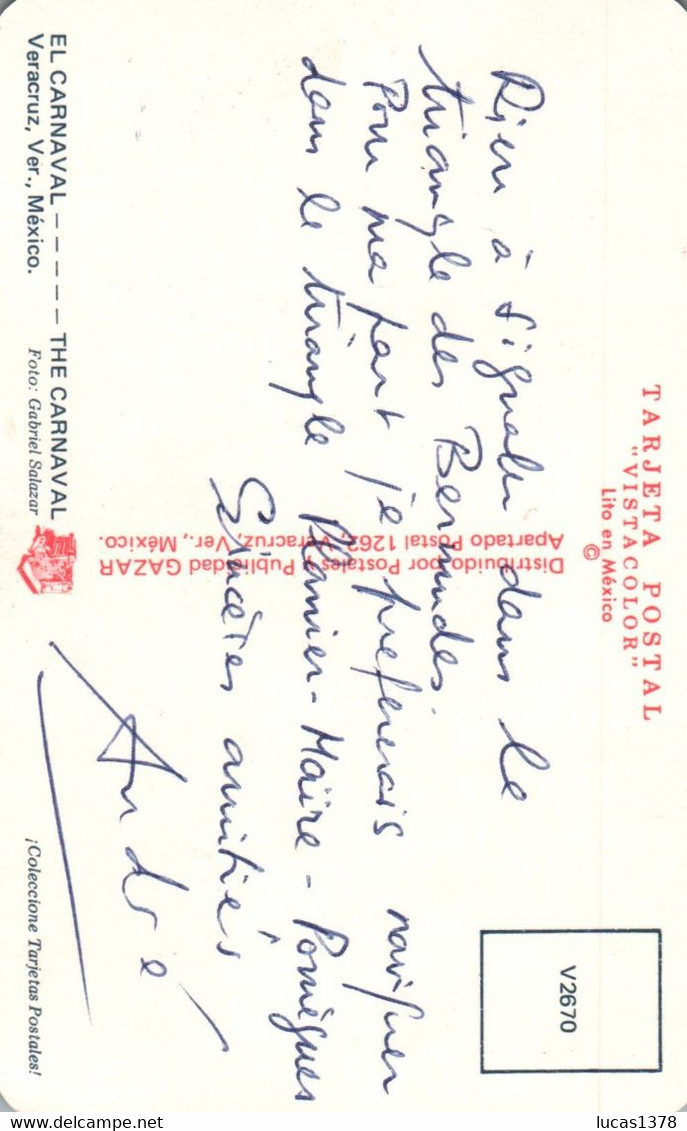 TARJETA POSTAL
"VISTACOLOR"
Lito en México
©
V2670
Rien à signaler dans le
triangle des Bermudes.
Pour ma part je prefererais naviguer
dans le triangle Planier-Maïre-Pomègues
Sincères amitiés
André
Distribuido por Postales Publicidad GAZAR
Apartado Postal 1262, Veracruz, Ver., México.
EL CARNAVAL ----- THE CARNAVAL
Veracruz, Ver., México.
Foto: Gabriel Salazar
¡Coleccione Tarjetas Postales!
lucas1378